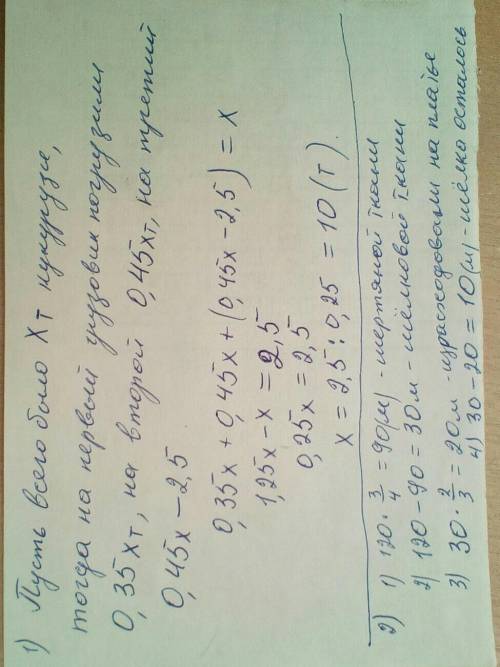 1) Пусть всего было x т кукурузы,
тогда на первый грузовик погрузили
0,35 x т, на второй 0,45 x т, на третий
0,45x − 2,5
0,35x + 0,45x + (0,45x − 2,5) = x
1,25x − x = 2,5
0,25x = 2,5
x = 2,5 : 0,25 = 10 (т).
2) 1) 120 · 3/4 = 90(м) - шертяной ткани
2) 120 − 90 = 30 м - шёлковой ткани
3) 30 · 2/3 = 20 м - израсходовали на платье
4) 30 − 20 = 10(м) - шёлко осталось